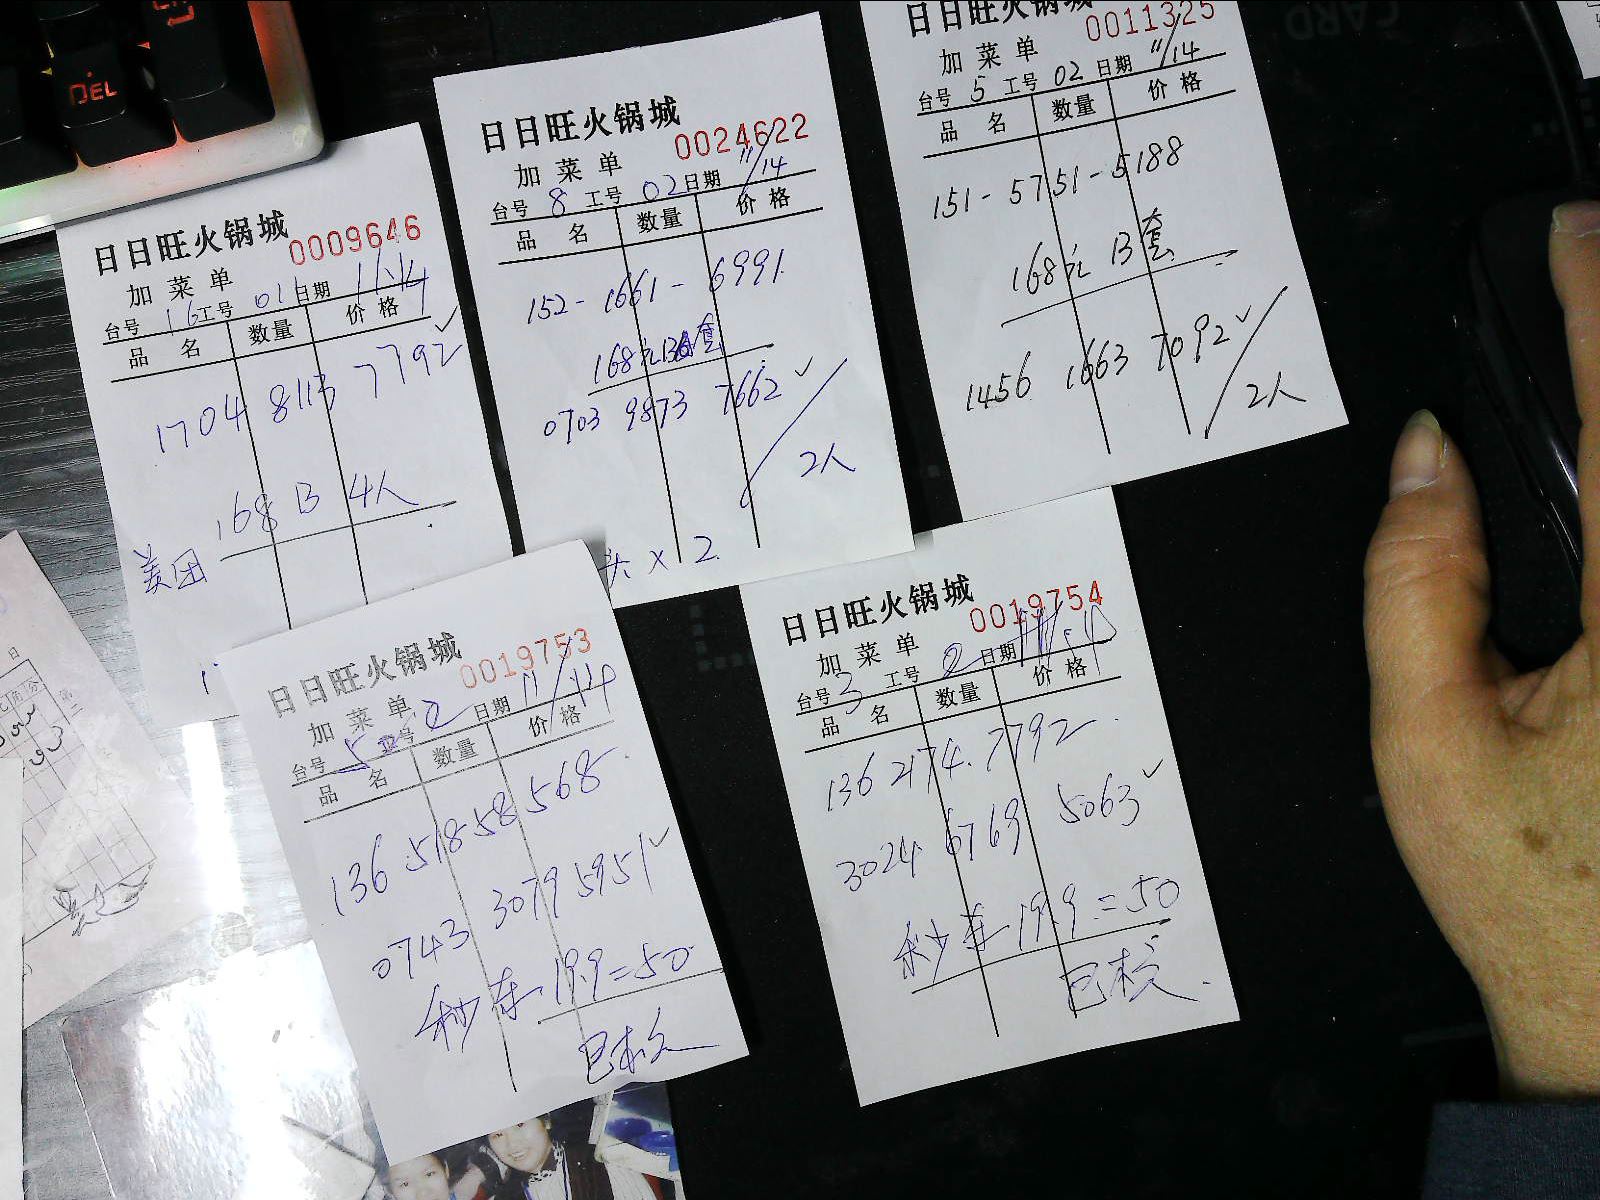 DEL
日日旺火锅城
0009646
加菜单
台号 16 工号 01 日期 11.14
品名 数量 价格
1704 8113 7792✓
168 B 4人
美团
日日旺火锅城
0024622
加菜单
台号 8 工号 02 日期 11/14
品名 数量 价格
152-1661-6991.
168元B套
0703 9873 7662✓
2人
头×2.
日日旺火锅城
0011325
加菜单
台号 5 工号 02 日期 11/14
品名 数量 价格
151-5751-5188
168元B套
1456 1663 7092✓
2人
日日旺火锅城
0019753
加菜单
台号 工号 2 日期 11/14
品名 数量 价格
136 518 58 568.
0743 3079 5951✓
秒 19.9=50
已核
日日旺火锅城
0019754
加菜单
台号 3 工号 2 日期
品名 数量 价格
136 2174.7792.
3024 6769 5063✓
秒 19.9=50
已核.